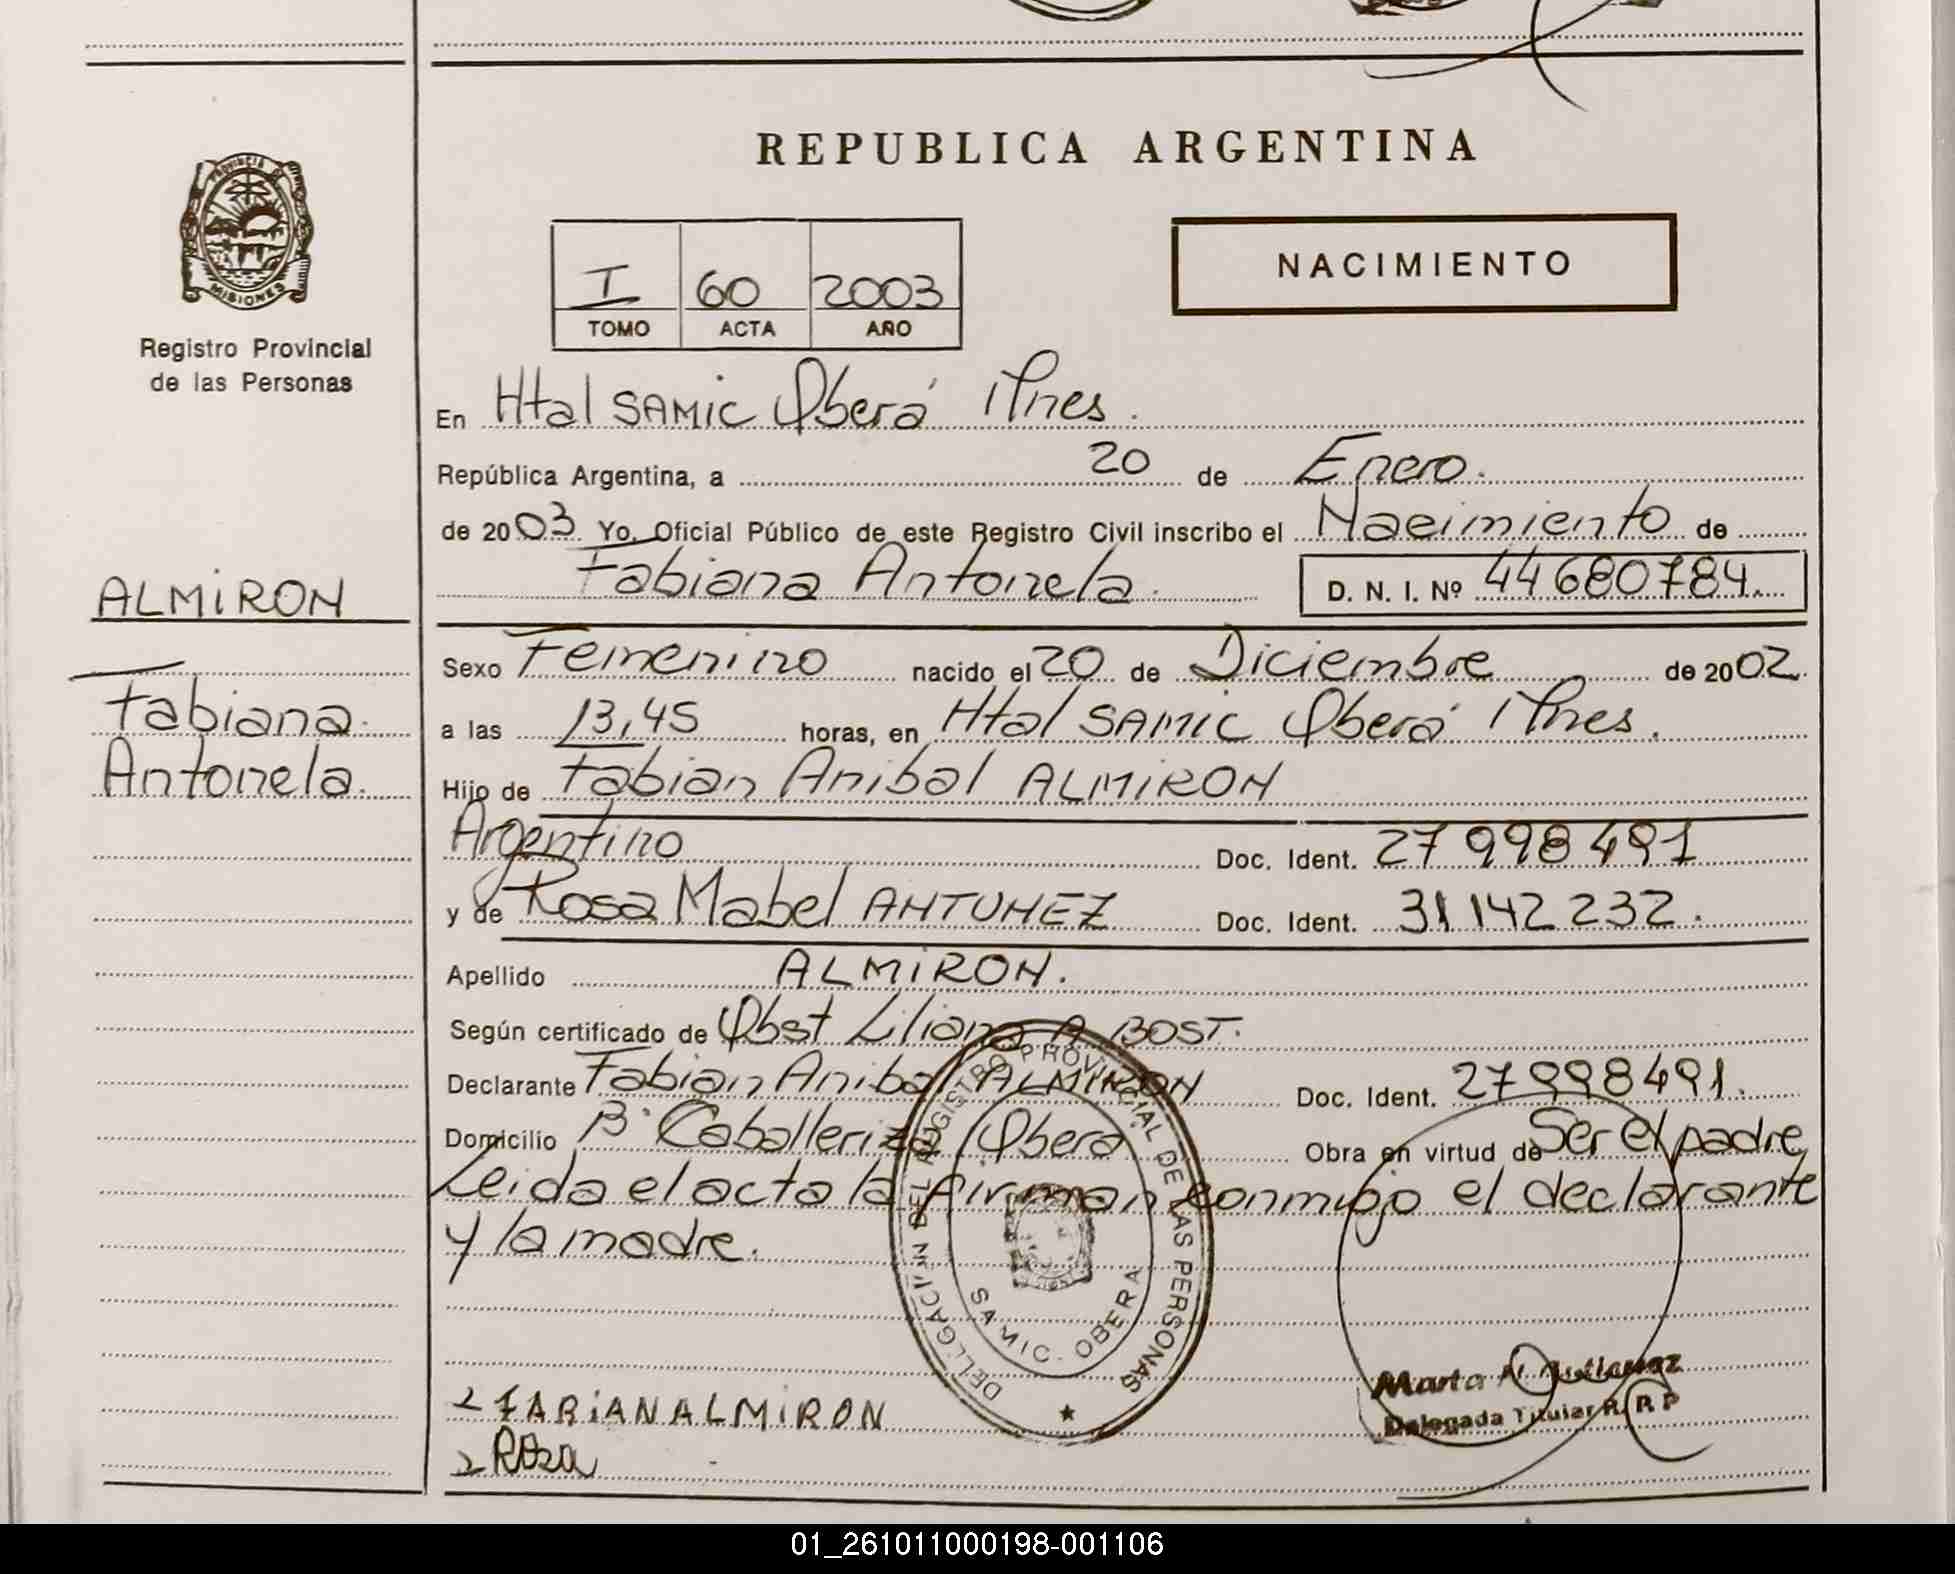 REPUBLICA ARGENTINA
PROVINCIA DE
MISIONES
Registro Provincial
de las Personas
I 60 2003
TOMO ACTA AÑO
NACIMIENTO
En Htal SAMIC Oberá Mnes.
República Argentina, a 20 de Enero.
de 2003 Yo, Oficial Público de este Registro Civil inscribo el Nacimiento de
Fabiana Antonela. D. N. I. Nº 44680784.
ALMIRON
Fabiana
Antonela.
Sexo Femenino nacido el 20 de Diciembre de 2002.
a las 13,45 horas, en Htal SAMIC Oberá Mnes.
Hijo de Fabian Anibal ALMIRON
Argentino Doc. Ident. 27 998 491
y de Rosa Mabel ANTUNEZ Doc. Ident. 31 142 232.
Apellido ALMIRON.
Según certificado de Obst Liliana A BOST.
Declarante Fabian Anibal ALMIRON Doc. Ident. 27998491.
Domicilio Bº Caballeriza, Oberá Obra en virtud de Ser el padre
Leida el acta la firman conmigo el declarante
y la madre.
DELEGACION DEL REGISTRO PROVINCIAL DE LAS PERSONAS
SAMIC. OBERA
FABIAN ALMIRON
Rosa
Marta N Gutierrez
Delegada Titular R. R P
01_261011000198-001106